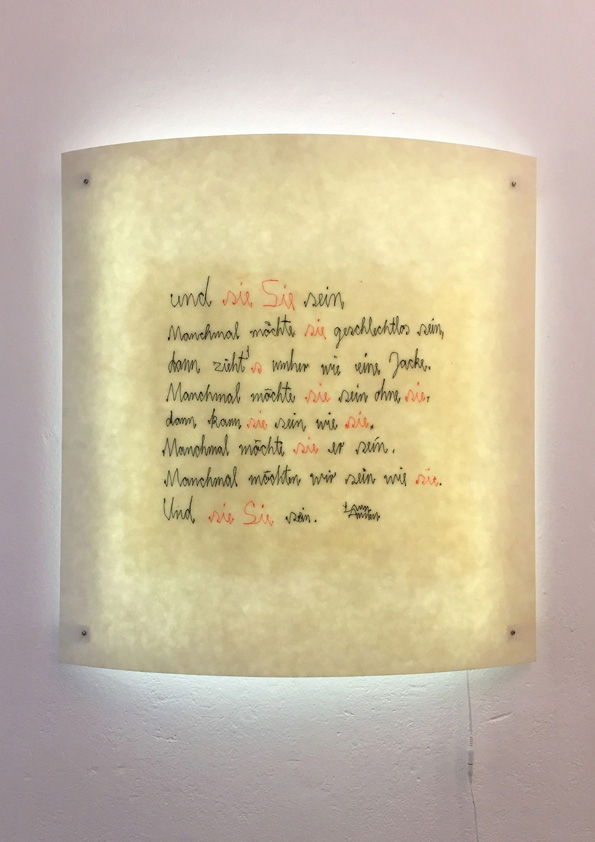 und sie Sie sein,
Manchmal möchte sie geschlechtlos sein,
dann zieht's umher wie eine Jacke.
Manchmal möchte sie sein ohne sie,
dann kann sie sein wie sie.
Manchmal möchte sie er sein.
Manchmal möchten wir sein wie sie.
Und sie Sie sein.